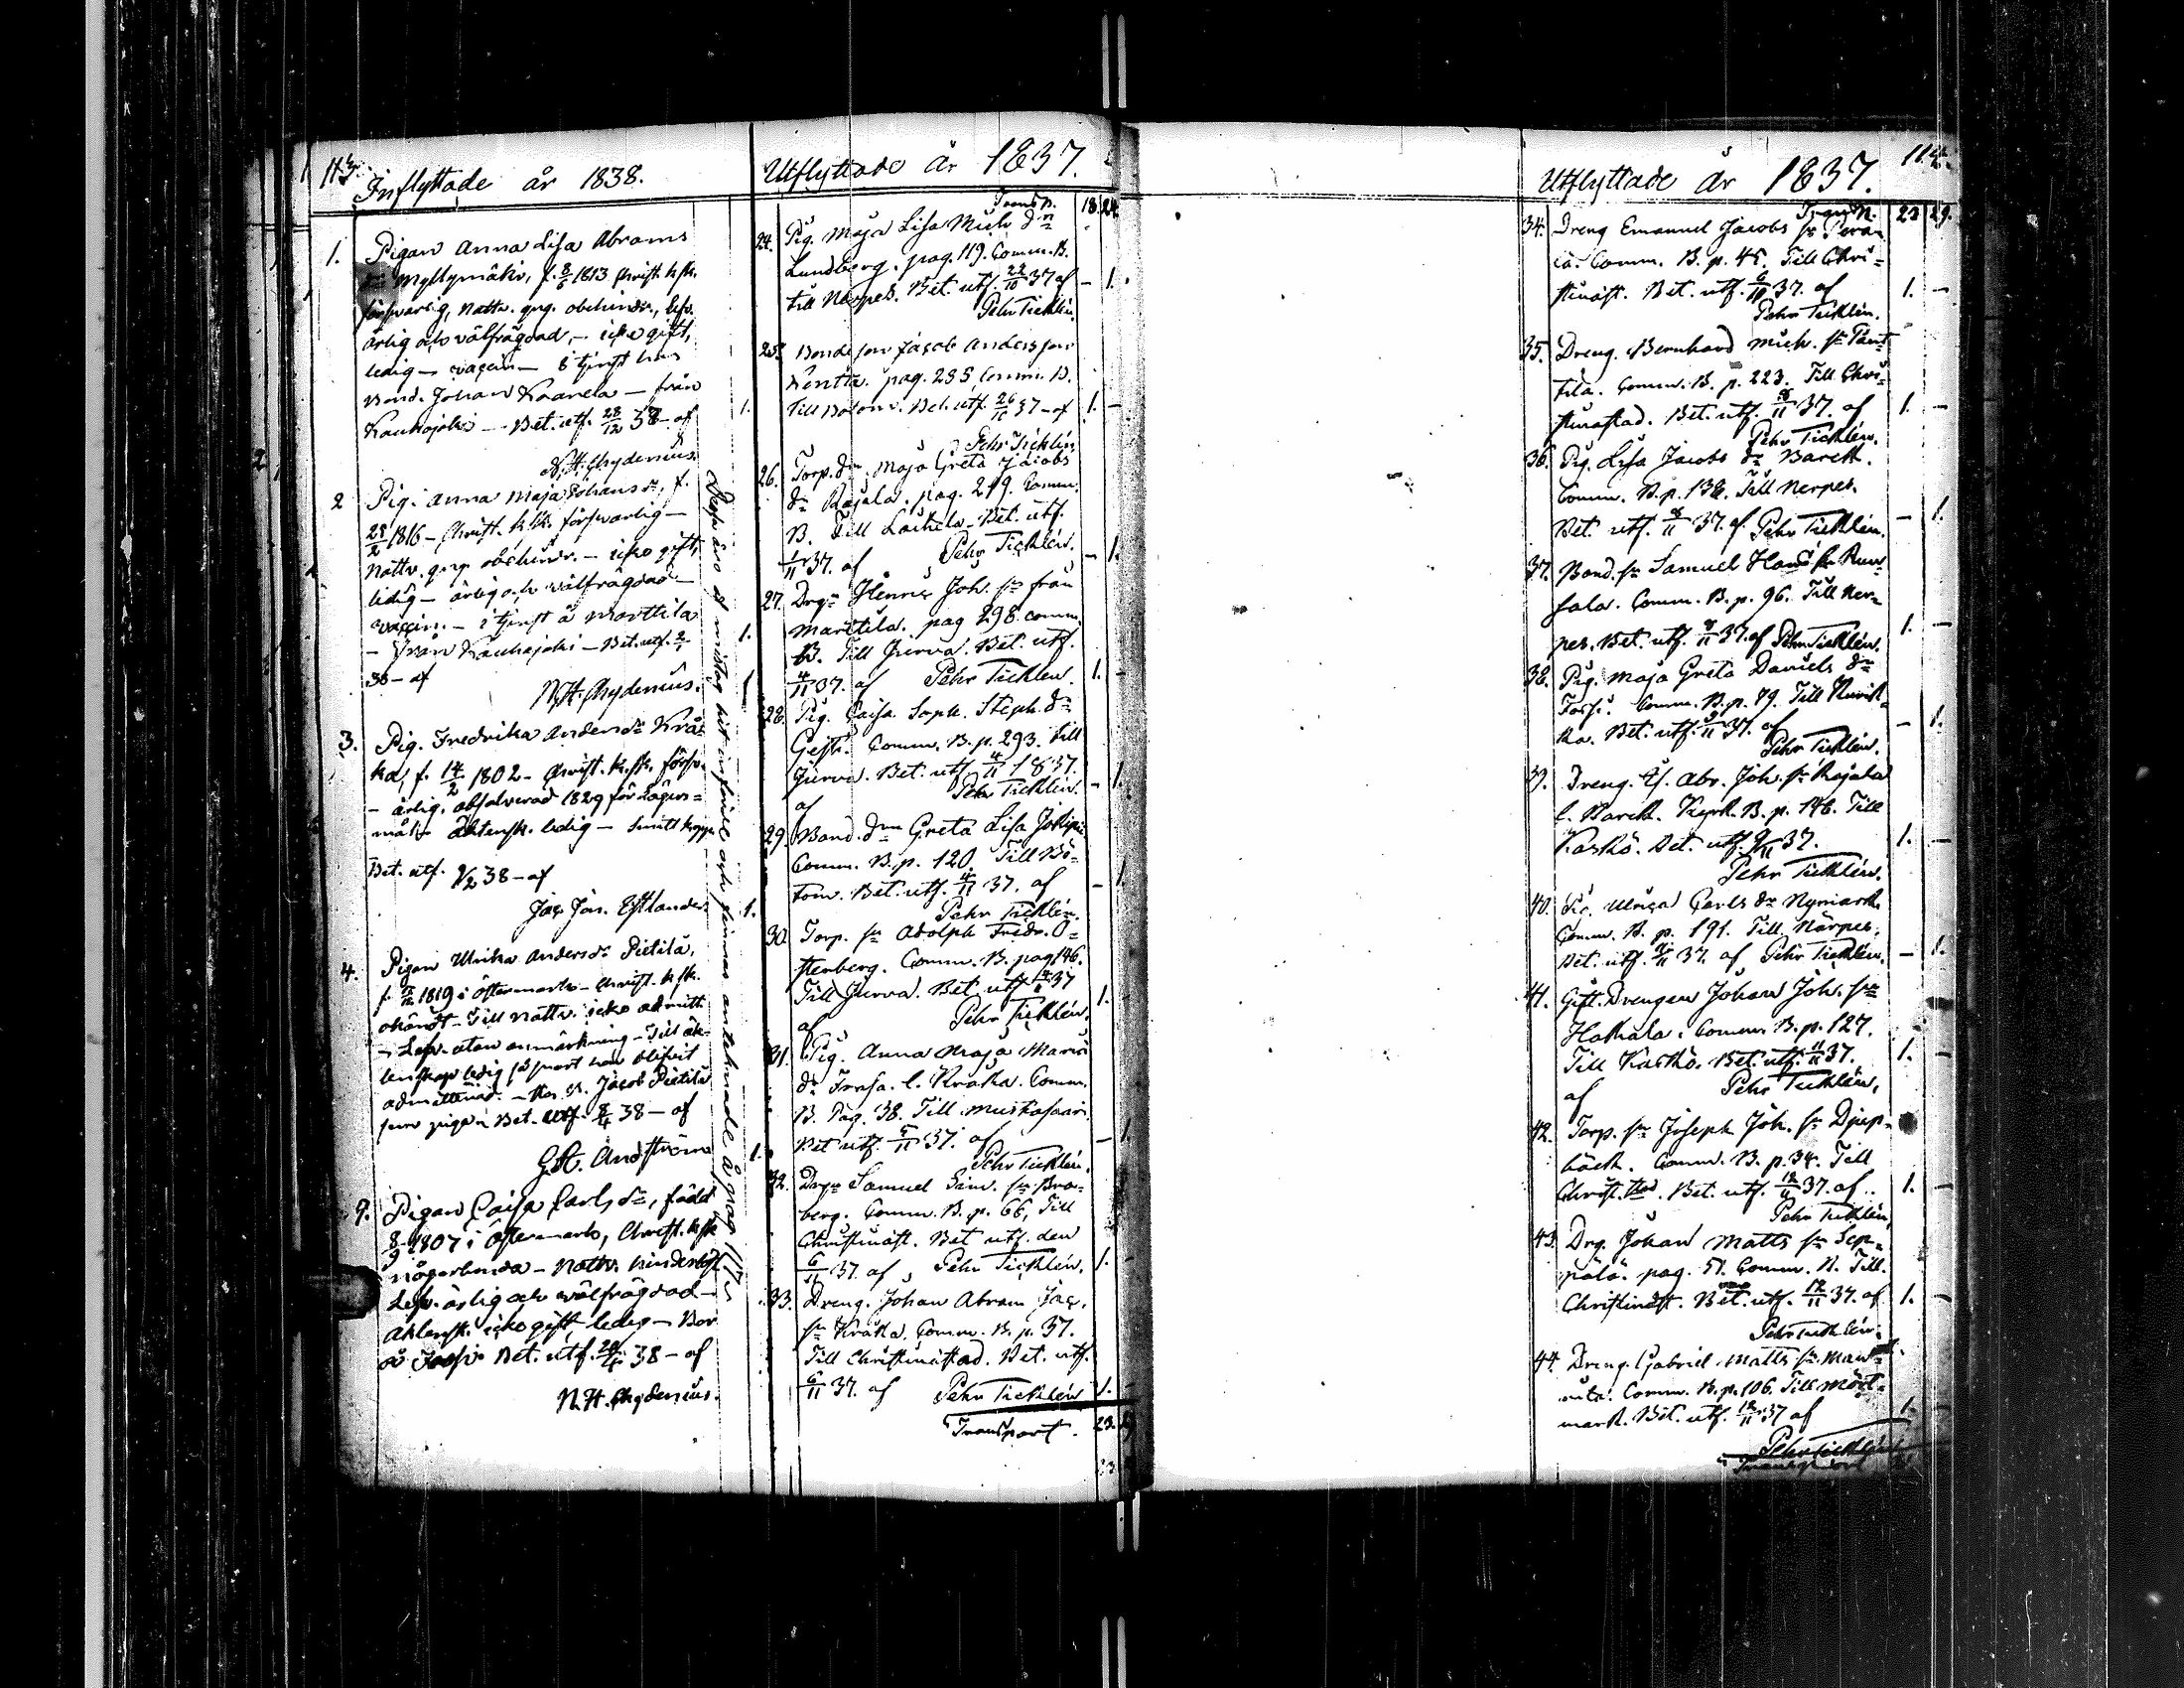 113.
Inflyttade år 1838.
1. Pigan Anna Lisa Abrams
dr Myllymäki, f. 8/5 1813 Christ. k.sk.
försvarlig, Nattv. geg. obehindr., lefv.
ärlig och välfrägdad, – icke gift,
ledig – vaccin – i tjenst hos
Bond. Johan Kaarela – från
Kauhajoki – Bet. utf. 28/12 38 – af 1.
N. H. Chydenius
2 Pig. Anna Maja Johansdr, f.
25/2 1816 – Christ. k.sk. försvarlig –
Nattv. geg. obehindr. – icke gift,
ledig – ärlig och välfrägdad –
vaccin. – i tjenst å Marttila
– från Kauhajoki – Bet. utf. 1.
38 – af
N. H. Chydenius.
3. Pig. Fredrika Andersdr Krå-
ka, f. 14/2 1802 – Christ. k.sk. försv.
– ärlig, absolverad 1829 för Lägers-
mål – Äktensk. ledig –
Bet. utf. 9/2 38 – af
Jac. Jon. Estlander 1.
4. Pigan Ulrika Andersdr Pietilä,
f. 1819 i Östermark – Christ. k.sk.
okändt – Till Nattv. icke admitt.
– Lefv. utan anmärkning – Till äk-
tenskap ledig så snart hon blifvit
admitterad. – Jacob Pietilä
som piga. Bet. utf. 8/4 38 – af
G. A. Andström 1.
9. Pigan Caisa Carlsdr, född
8/9 1807 i Östermark, Christ. k.sk
någorlunda – Nattv.
Lefv. ärlig och välfrägdad –
Äktensk. icke gift, ledig – Bor
å Jossi. Bet. utf. 38 – af
N. H. Chydenius.
Desse äro af misstag hit införde och finnas antecknade å pag. 117
Utflyttade År 1837.
Transp. 18. 24.
24. Pig. Maja Lisa Mich. dr
Lundberg. pag. 119. Comm. B.
till Nerpes. Bet. utf. 22/10 37 af – 1.
Pehr Ticklén.
25. Bondeson Jacob Andersson
Köntta. pag. 235 Comm. B.
Till Bötom. Bet. utf. 26/10 37 – af 1. –
Pehr Ticklén
26. Torp. dr. Maja Greta Jacobs
dr Rajala. pag. 249. Comm.
B. Till Laihela – Bet. utf.
1/11 37. af Pehr Ticklén. – 1.
27. Drgn Henric Joh. sn från
Marttila. pag 298. Comm.
B. Till Jurva. Bet. utf.
4/11 37. af Pehr Ticklén. 1. –
28. Pig. Caisa Soph. Steph. dr
Gestr. Comm. B. p. 293. Till
Jurva. Bet. utf. 4/11 1837.
af Pehr Ticklén. – 1.
29. Bond. drn Greta Lisa Jokipi
Comm. B. p. 120. Till Bö-
tom. Bet. utf. 4/11 37. af – 1.
Pehr Ticklén.
30. Torp. sn Adolph Fredr. O-
sterberg. Comm. B. pag 146.
Till Jurva. Bet. utf. 37
af Pehr Ticklén. 1.
31. Pig. Anna Maja Maris
dr Frasa. l. Kraka. Comm.
B. Pag. 38. Till Mustasaari.
Bet utf. 5/11 37. af – 1.
Pehr Ticklén.
32. Drgn Samuel Sim. sn Bro-
berg. Comm. B. p. 66, Till
Christinäst. Bet utf. den
6/11 37. af Pehr Ticklén. 1.
33. Dreng. Johan Abram Jac.
sn Kråka. Comm. B. p. 37.
Till Christinästad. Bet. utf.
6/11 37. af Pehr Ticklén 1.
Transport. 23.
114.
Utflyttade År 1837.
Transp. 23 29.
34. Dreng Emanuel Jacobs sn Pera-
lä. Comm. B. p. 45. Till Chri-
stinäst. Bet. utf. 6/11 37. af 1. –
Pehr Ticklén.
35. Dreng. Bernhard Mich. sn Pänt-
tilä. Comm. B. p. 223. Till Chri-
stinästad. Bet. utf. 8/11 37. af 1. –
Pehr Ticklén.
36. Pig. Lisa Jacobs dr Barck.
Comm. B. p. 136. Till Nerpes.
Bet. utf. 8/11 37. af Pehr Ticklén. – 1.
37. Bond. sn Samuel Hans sn Ruu-
sala. Comm. B. p. 96. Till Ner-
pes. Bet. utf. 8/11 37. af Pehr Ticklén. 1. –
38. Pig. Maja Greta Daniels dr
Jossi. Comm. B. p. 79. Till Kurik-
ka. Bet. utf. 9/11 37. af – 1.
Pehr Ticklén.
39. Dreng. Abr. Joh. sn Rajala
l. Barck. Kyrk. B. p. 146. Till
Kaskö. Bet. utf. 9/11 37. 1. –
Pehr Ticklén.
40. Pig. Ulrica Carls dr Nymark.
Comm. B. p. 191. Till Närpes.
Bet. utf. 37. af Pehr Ticklén. – 1.
41. Gift. Drengen Johan Joh. sn
Hakala. Comm. B. p. 127.
Till Kaskö. Bet. utf. 11/11 37. 1. –
af Pehr Ticklén.
42. Torp. sn Joseph Joh. sn Djup-
bäck. Comm. B. p. 34. Till
Christ. stad. Bet. utf. 12/11 37. af 1. –
Pehr Ticklén
43. Drg. Johan Matts sn Sep-
pälä. pag. 51. Comm. B. Till
Christinäst. Bet. utf. 12/11 37. af 1. –
Pehr Ticklén.
44. Dreng. Gabriel Matts sn
Comm. B. p. 106. Till
mark. Bet. utf. 12/11 37 af 1. –
Pehr Ticklén
Transport